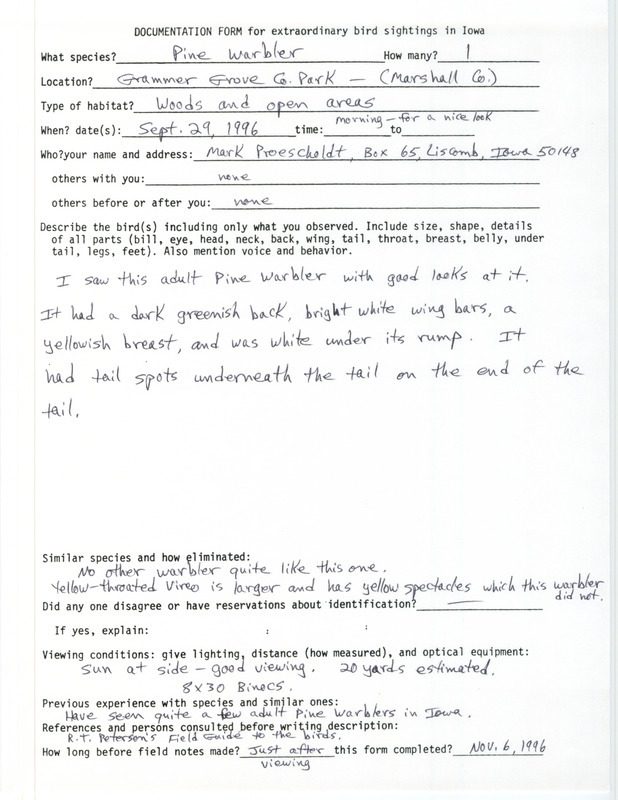 DOCUMENTATION FORM for extraordinary bird sightings in Iowa
What species? Pine Warbler How many? 1
Location? Grammer Grove Co. Park — (Marshall Co.)
Type of habitat? Woods and open areas
When? date(s): Sept. 29, 1996 time: morning - for a nice look to
Who?your name and address: Mark Proescholdt, Box 65, Liscomb, Iowa 50148
others with you: none
others before or after you: none
Describe the bird(s) including only what you observed. Include size, shape, details
of all parts (bill, eye, head, neck, back, wing, tail, throat, breast, belly, under
tail, legs, feet). Also mention voice and behavior.
I saw this adult Pine Warbler with good looks at it.
It had a dark greenish back, bright white wing bars, a
yellowish breast, and was white under its rump. It
had tail spots underneath the tail on the end of the
tail.
Similar species and how eliminated:
No other warbler quite like this one.
Yellow-throated Vireo is larger and has yellow spectacles which this warbler
did not.
Did any one disagree or have reservations about identification? —
If yes, explain:
Viewing conditions: give lighting, distance (how measured), and optical equipment:
Sun at side - good viewing. 20 yards estimated.
8x30 Binocs.
Previous experience with species and similar ones:
Have seen quite a few adult Pine Warblers in Iowa.
References and persons consulted before writing description:
R.T. Peterson's Field Guide to the birds.
How long before field notes made? Just after this form completed? Nov. 6, 1996
viewing